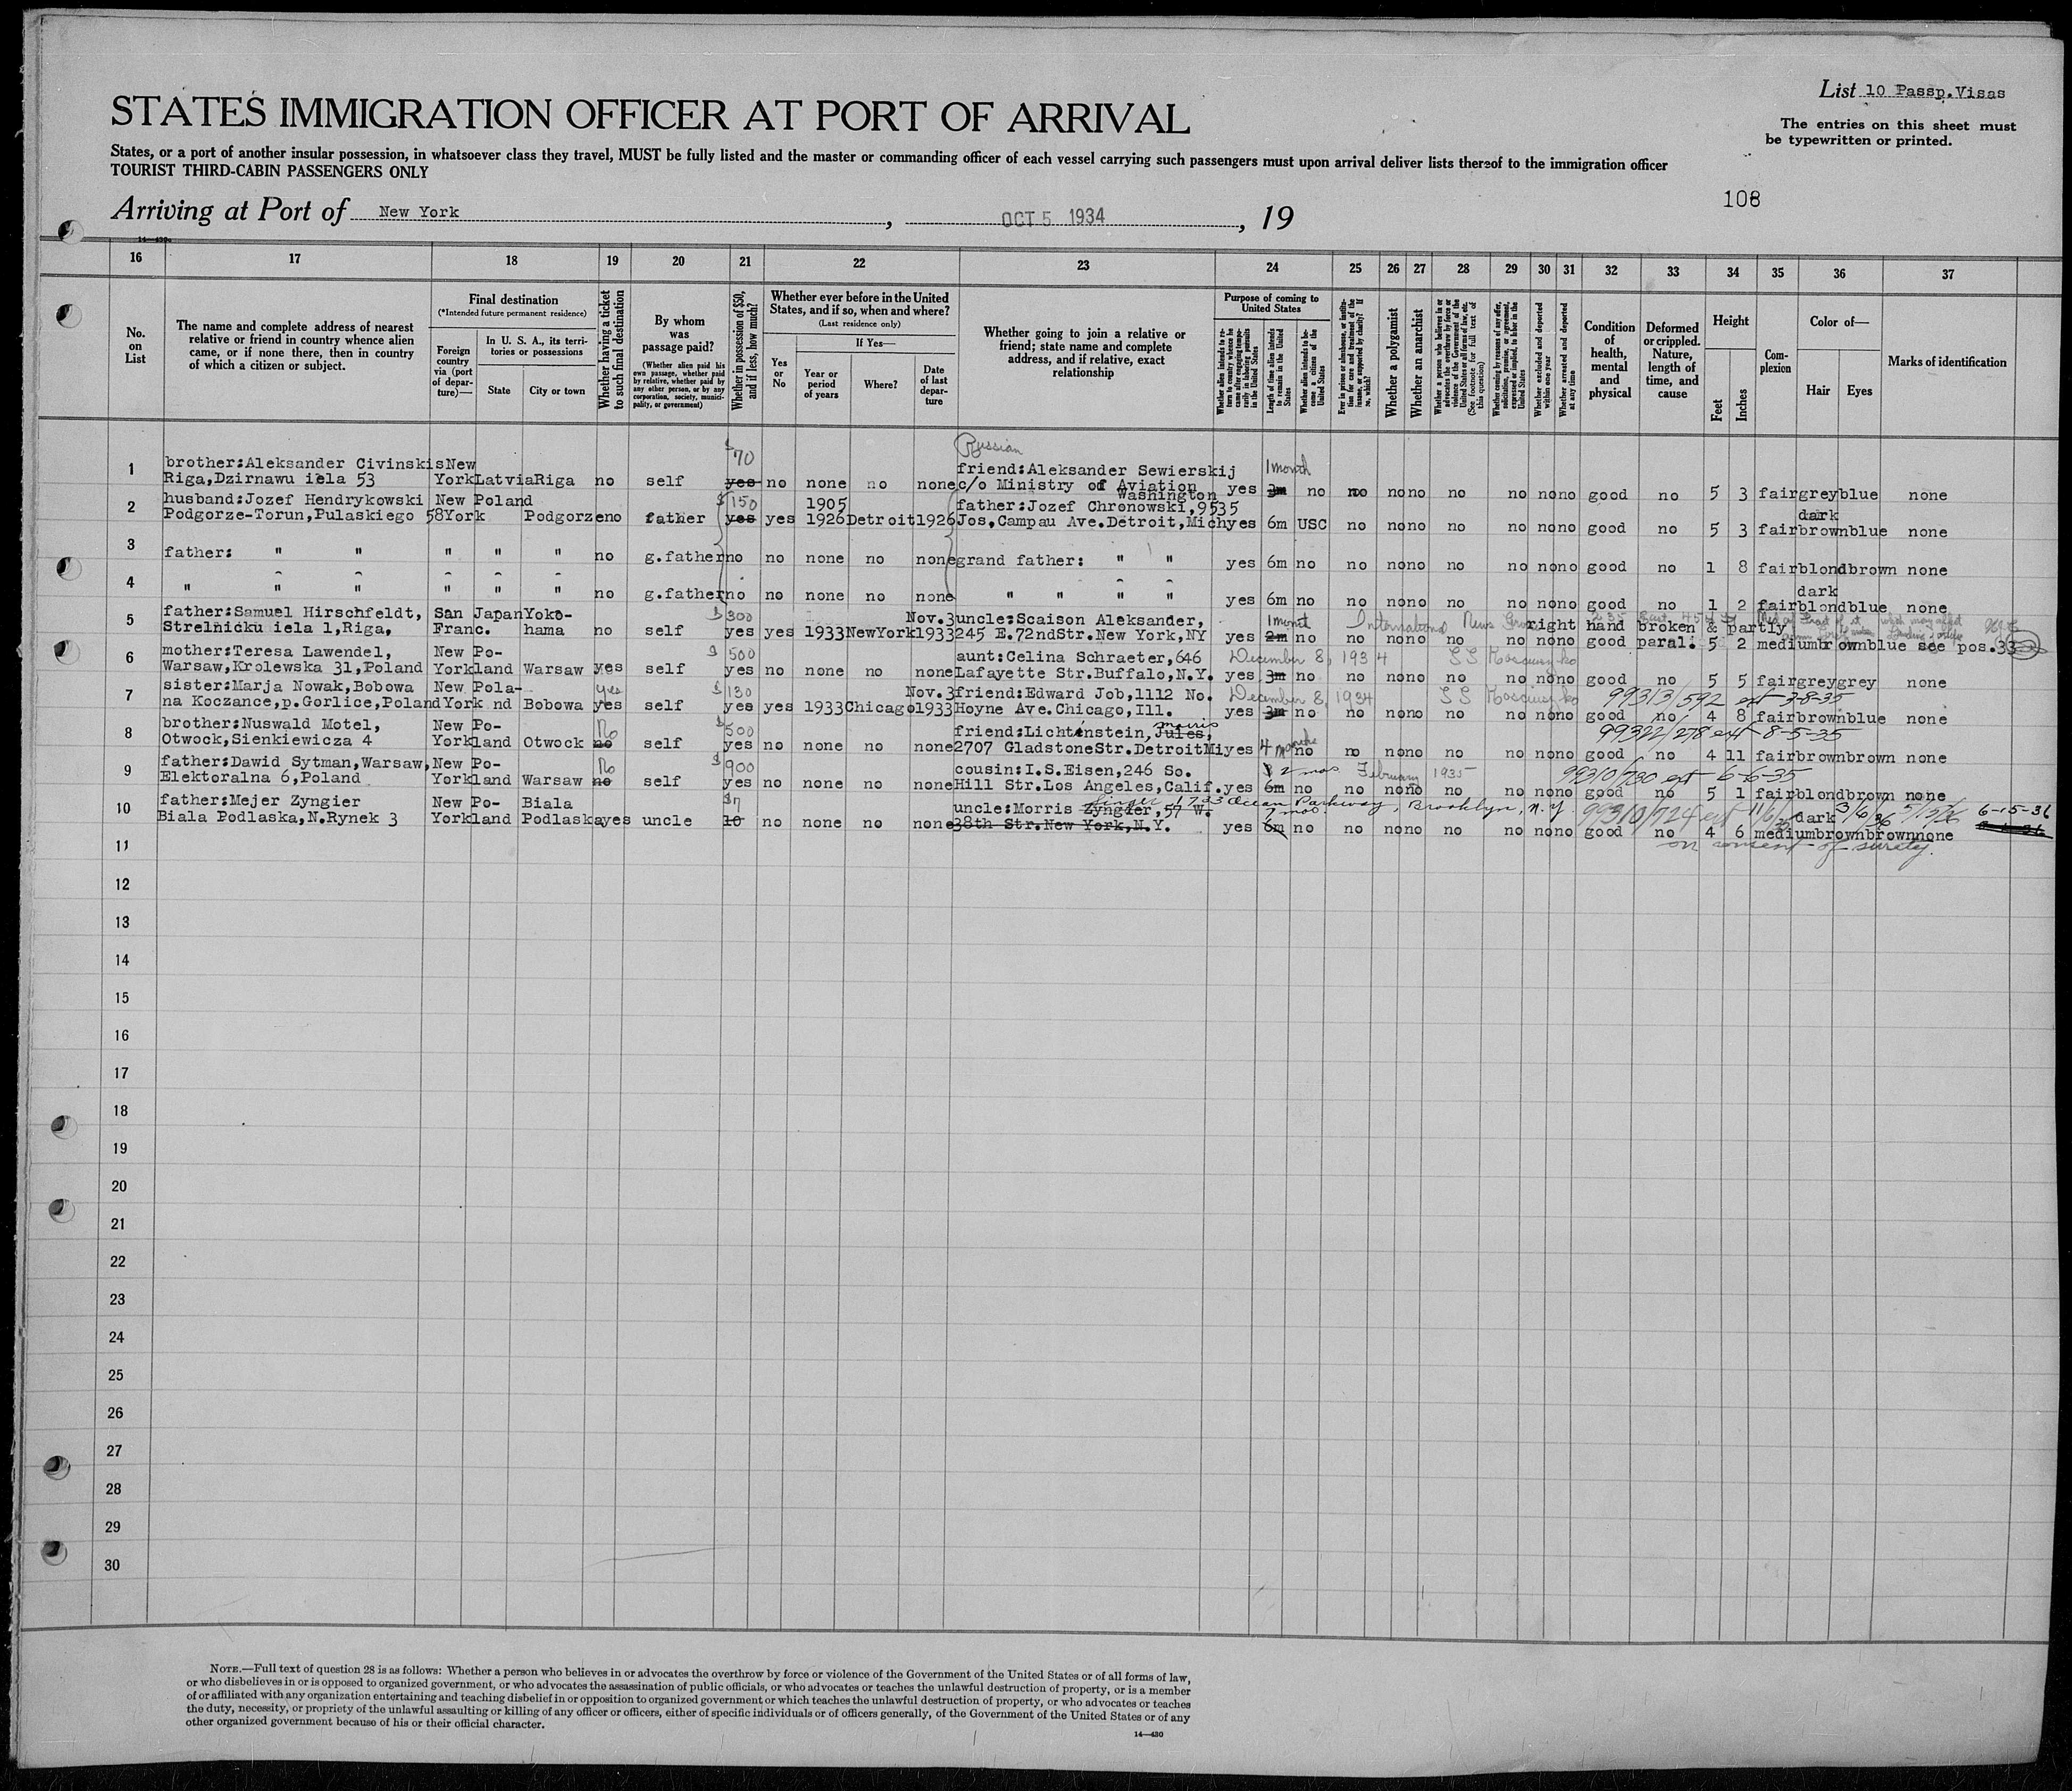 List 10 Passp.Visas
STATES IMMIGRATION OFFICER AT PORT OF ARRIVAL
The entries on this sheet must
be typewritten or printed.
States, or a port of another insular possession, in whatsoever class they travel, MUST be fully listed and the master or commanding officer of each vessel carrying such passengers must upon arrival deliver lists thereof to the immigration officer
TOURIST THIRD-CABIN PASSENGERS ONLY
108
Arriving at Port of New York, OCT 5 1934, 19
16 17 18 19 20 21 22 23 24 25 26 27 28 29 30 31 32 33 34 35 36 37
No. on List
The name and complete address of nearest relative or friend in country whence alien came, or if none there, then in country of which a citizen or subject.
Final destination
(*Intended future permanent residence)
Foreign country via (port of departure)—
In U. S. A., its territories or possessions
State
City or town
Whether having a ticket to such final destination
By whom was passage paid?
(Whether alien paid his own passage, whether paid by relative, whether paid by any other person, or by any corporation, society, municipality, or government)
Whether in possession of $50, and if less, how much?
Whether ever before in the United States, and if so, when and where?
(Last residence only)
Yes or No
If Yes—
Year or period of years
Where?
Date of last departure
Whether going to join a relative or friend; state name and complete address, and if relative, exact relationship
Purpose of coming to United States
Length of time alien intends to remain in the United States
Whether alien intends to become a citizen of the United States
Whether a polygamist
Whether an anarchist
Whether excluded and deported within one year
Whether arrested and deported at any time
Condition of health, mental and physical
Deformed or crippled. Nature, length of time, and cause
Height
Feet
Inches
Complexion
Color of—
Hair
Eyes
Marks of identification
Russian
$70
1 brother:Aleksander Civinskis New
friend:Aleksander Sewierskij 1 month
Riga,Dzirnawu iela 53 York Latvia Riga no self yes no none no none c/o Ministry of Aviation yes 3m no no no no no no no no good no 5 3 fair grey blue none
Washington
2 husband:Jozef Hendrykowski New Poland $150 1905 father:Jozef Chronowski,9535 dark
Podgorze-Torun,Pulaskiego 58 York Podgorze no father yes yes 1926 Detroit 1926 Jos.Campau Ave.Detroit,Mich yes 6m USC no no no no no no no good no 5 3 fair brown blue none
3 father: " " " " " no g.father no no none no none grand father: " " yes 6m no no no no no no no no good no 1 8 fair blond brown none
dark
4 " " " " " " no g.father no no none no none " " " " yes 6m no no no no no no no no good no 1 2 fair blond blue none
5 father:Samuel Hirschfeldt, San Japan Yoko- $300 Nov.3 uncle:Scaison Aleksander, 1 month International News right hand broken & partly
Strelnicku iela 1,Riga, Franc. hama no self yes yes 1933 NewYork 1933 245 E.72ndStr.New York,NY yes 2m no no no no no no no no good paral. 5 2 medium brown blue see pos.33
6 mother:Teresa Lawendel, New Po- $500 aunt:Celina Schraeter,646 December 8, 1934 SS Kosciuszko
Warsaw,Krolewska 31,Poland York land Warsaw yes self yes no none no none Lafayette Str.Buffalo,N.Y. yes 3m no no no no no no no no good no 5 5 fair grey grey none
7 sister:Marja Nowak,Bobowa New Pola- yes $130 Nov.3 friend:Edward Job,1112 No. December 8, 1934 SS Kosciuszko 99313/592 ext 3-8-35
na Koczance,p.Gorlice,Poland York nd Bobowa yes self yes yes 1933 Chicago 1933 Hoyne Ave.Chicago,Ill. yes 3m no no no no no no no no good no 4 8 fair brown blue none
8 brother:Nuswald Motel, New Po- No $500 friend:Lichtenstein,Jules, Morris 99322/278 ext 8-5-35
Otwock,Sienkiewicza 4 York land Otwock no self yes no none no none 2707 GladstoneStr.DetroitMi yes 4 months no no no no no no no no good no 4 11 fair brown brown none
9 father:Dawid Sytman,Warsaw, New Po- No $900 cousin:I.S.Eisen,246 So. 2 mos February 1935 99310/730 ext 6-6-35
Elektoralna 6,Poland York land Warsaw no self yes no none no none Hill Str.Los Angeles,Calif. yes 6m no no no no no no no no good no 5 1 fair blond brown none
10 father:Mejer Zyngier New Po- Biala $7 uncle:Morris Zyngier,57 W. Singer 1733 Ocean Parkway, Brooklyn, N.Y 2 mos. 99310/724 ext dark 6-15-36
Biala Podlaska,N.Rynek 3 York land Podlaska yes uncle 10 no none no none 38th Str.New York,N.Y. yes 6m no no no no no no no no good no 4 6 medium brown brown none
on consent of surety.
11
12
13
14
15
16
17
18
19
20
21
22
23
24
25
26
27
28
29
30
NOTE.—Full text of question 28 is as follows: Whether a person who believes in or advocates the overthrow by force or violence of the Government of the United States or of all forms of law,
or who disbelieves in or is opposed to organized government, or who advocates the assassination of public officials, or who advocates or teaches the unlawful destruction of property, or is a member
of or affiliated with any organization entertaining and teaching disbelief in or opposition to organized government or which teaches the unlawful destruction of property, or who advocates or teaches
the duty, necessity, or propriety of the unlawful assaulting or killing of any officer or officers, either of specific individuals or of officers generally, of the Government of the United States or of any
other organized government because of his or their official character.
14—430